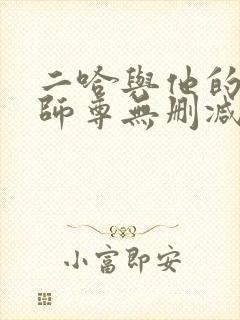 二哈與他的
師尊無刪減
小富即安